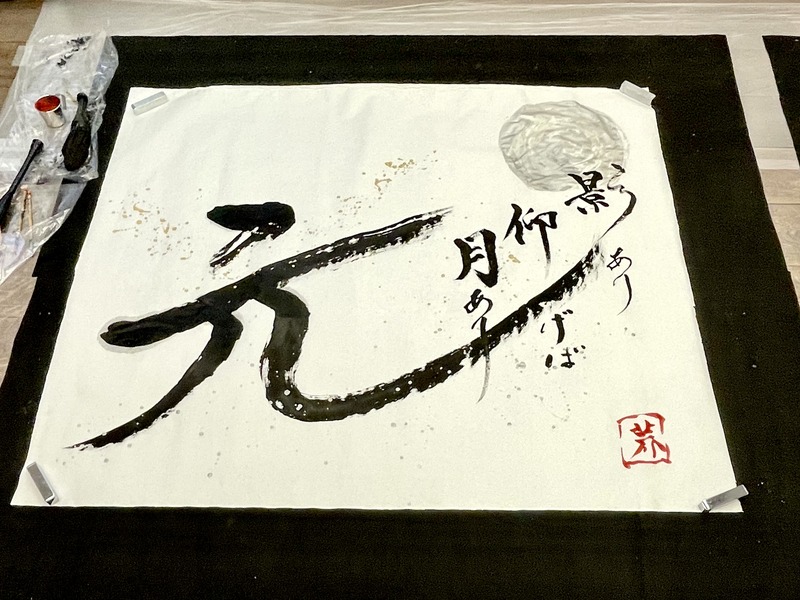 影あり
仰げば
月あり
元